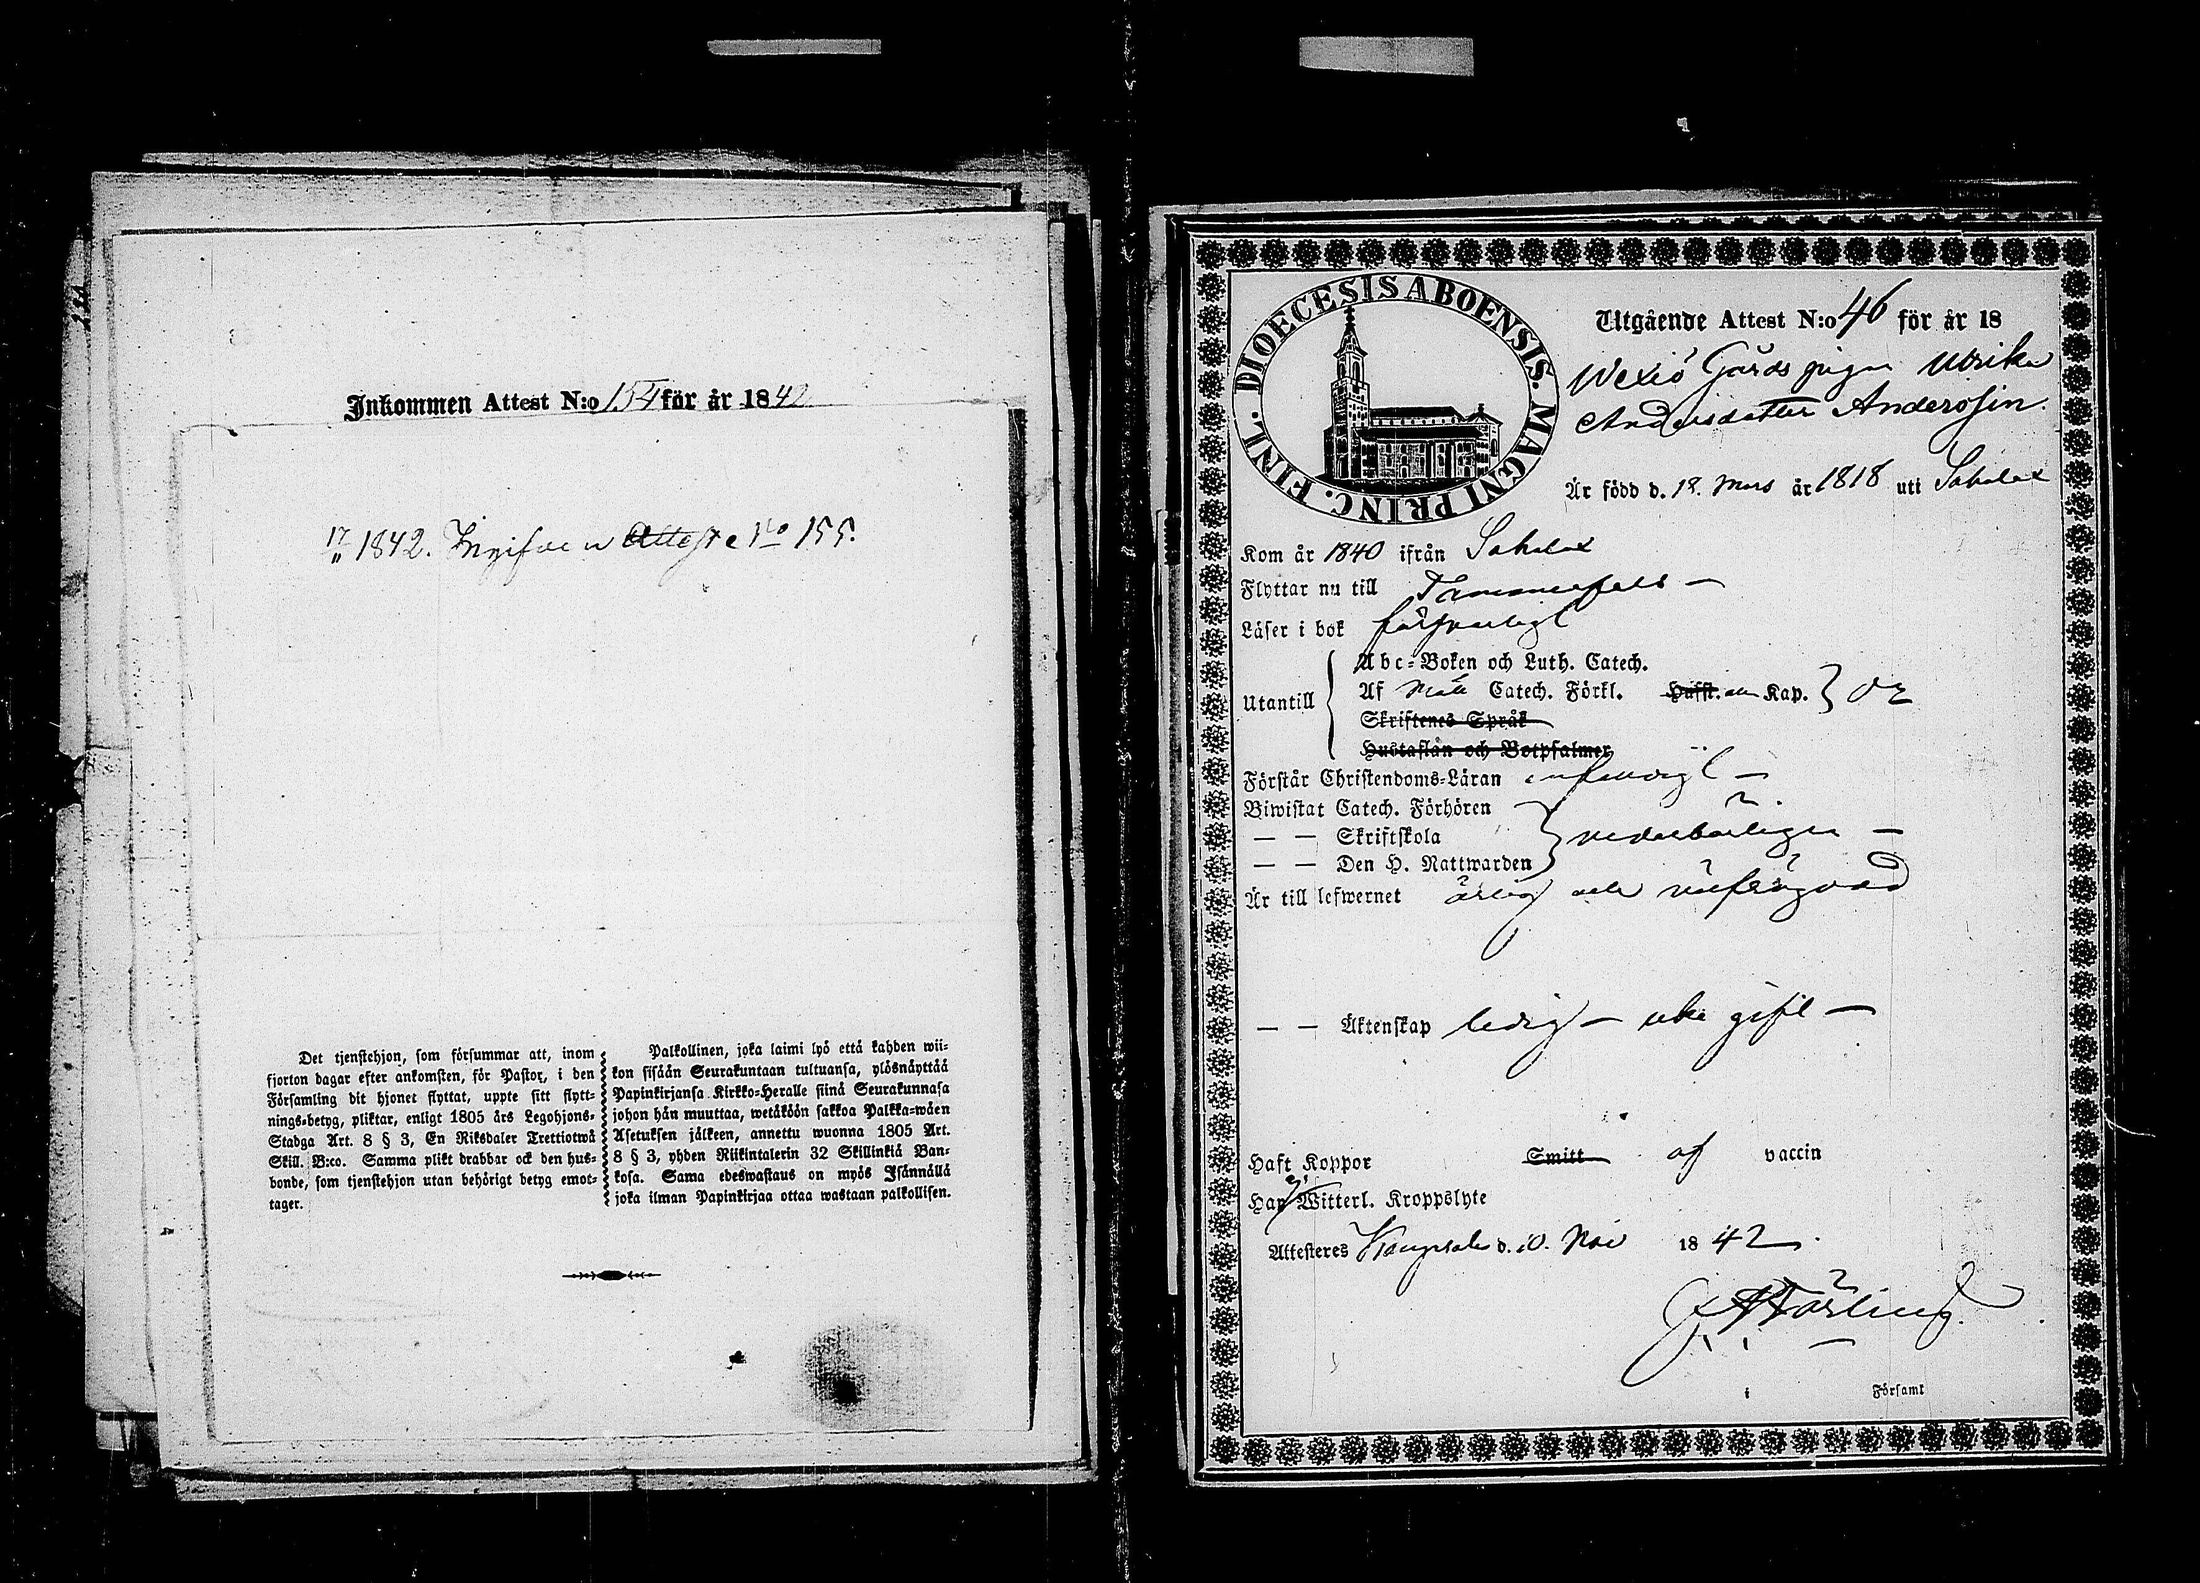 Inkommen Attest N:o 154 för år 1842
17/11 1842. Ingifven Atteste No 155.
Det tjenstehjon, som försummar att, inom
fjorton dagar efter ankomsten, för Pastor, i den
Församling dit hjonet flyttat, uppte sitt flytt-
nings-betyg, pliktar, enligt 1805 års Legohjons-
Stadga Art. 8 § 3, En Riksdaler Trettiotwå
Skill. B:co. Samma plikt drabbar ock den hus-
bonde, som tjenstehjon utan behörigt betyg emot-
tager.
Palkollinen, joka laimi lyö että kahden wii-
kon sisään Seurakuntaan tultuansa, ylösnäyttää
Papinkirjansa Kirkko-Heralle siinä Seurakunnasa
johon hän muuttaa, wetäköön sakkoa Palkka-wäen
Asetuksen jälkeen, annettu wuonna 1805 Art.
8 § 3, yhden Riikintalerin 32 Skillinkiä Ban-
kosa. Sama edeswastaus on myös Isännällä
joka ilman Papinkirjaa ottaa wastaan palkollisen.
DIOECESIS ABOENSIS. MAGNI PRINC. FINL.
Utgående Attest N:o 46 för år 18
Wexiö Gårds pigan Ulrika
Andersdotter Andersson.
Är född d. 18. Mars år 1818 uti Sahalax
Kom år 1840 ifrån Sahalax
Flyttar nu till Tammerfors —
Läser i bok försvarligt
Abc-Boken och Luth. Catech.
Utantill Af Catech. Förkl. Hufst. Kap.
Skriftenes Språk
Hustaflan och Botpsalmer
Förstår Christendoms-Läran enfaldigt —
Biwistat Catech. Förhören
— — Skriftskola vederbörligen —
— — Den H. Nattwarden
Är till lefwernet ärlig och oinfrägvad
— — Äktenskap ledig — icke gift —
Haft Koppor Smitt af vaccin
Har Witterl. Kroppslyte
Attesteres Kangasala d. 10. Nov 1842.
i Församl